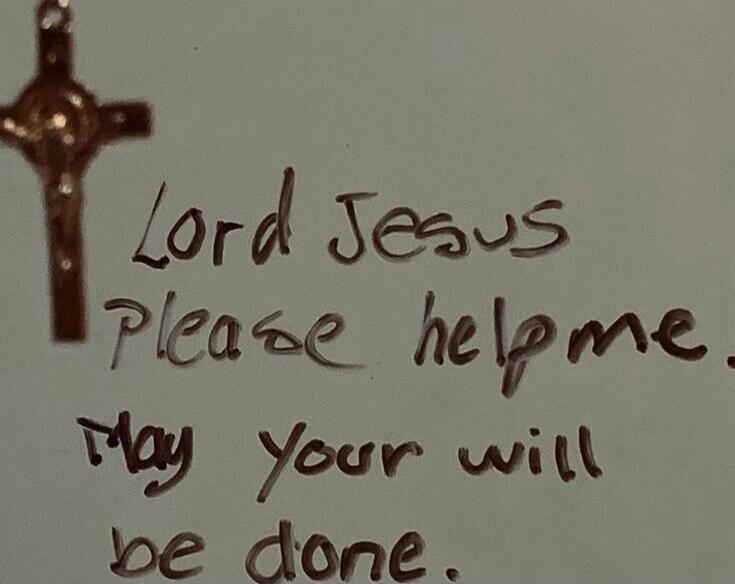 Lord Jesus
Please help me.
May your will
be done.